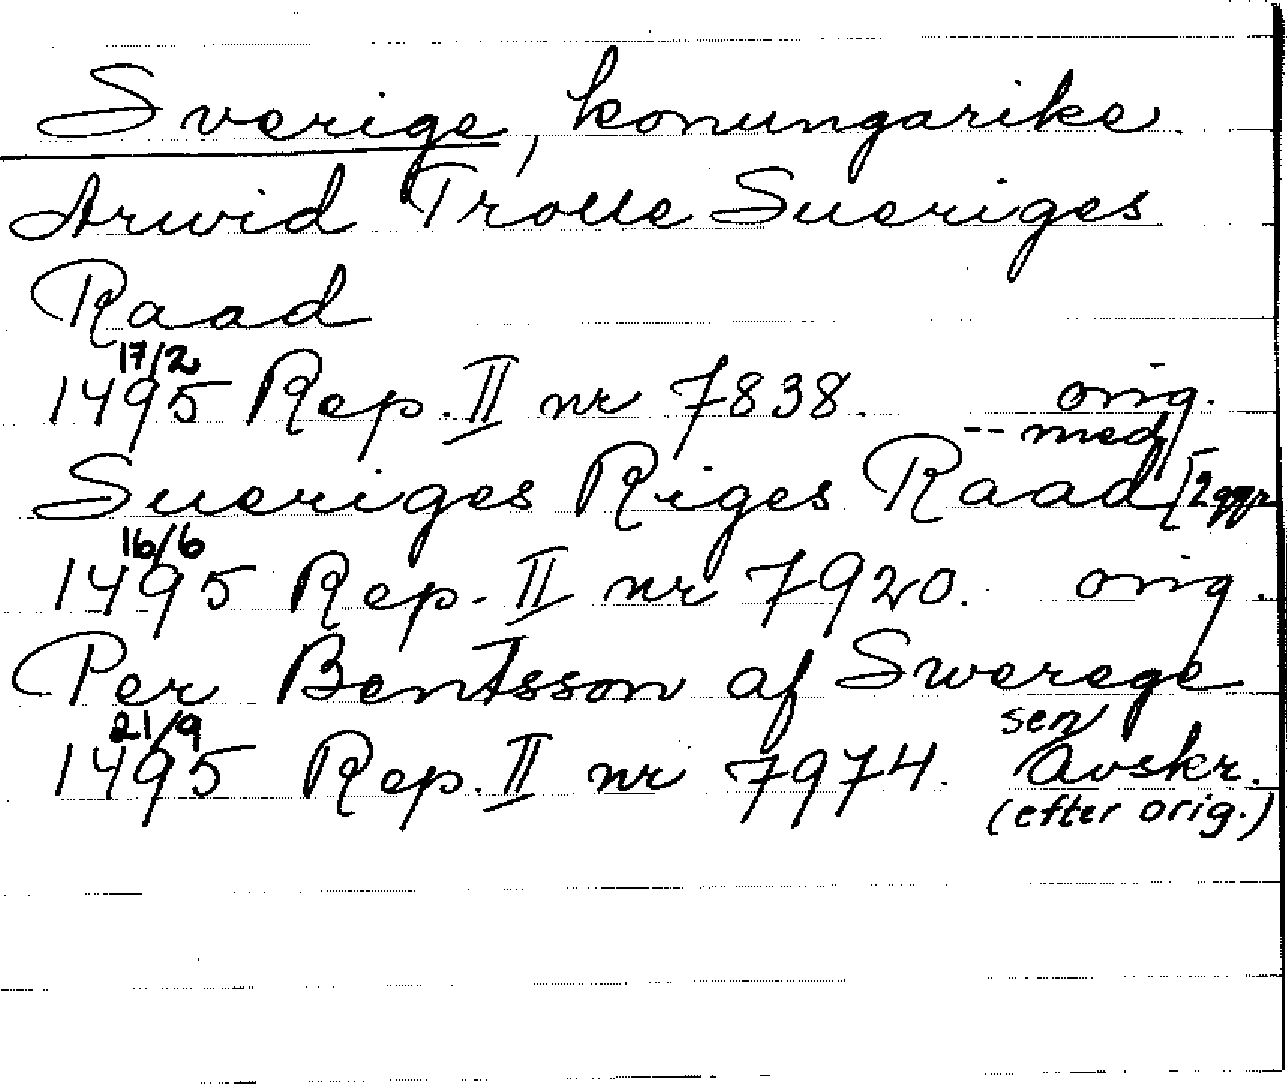 Sverige, konungarike
Arwid Trolle Sueriges
Raad
17/2
1495 Rep. II nr 7838. orig.
-- med
Sueriges Riges Raad [2 ggr
16/6
1495 Rep. II nr 7920. orig.
Per Bentsson af Swerege
21/9
1495 Rep. II nr 7974. sen Avskr.
(efter orig.)